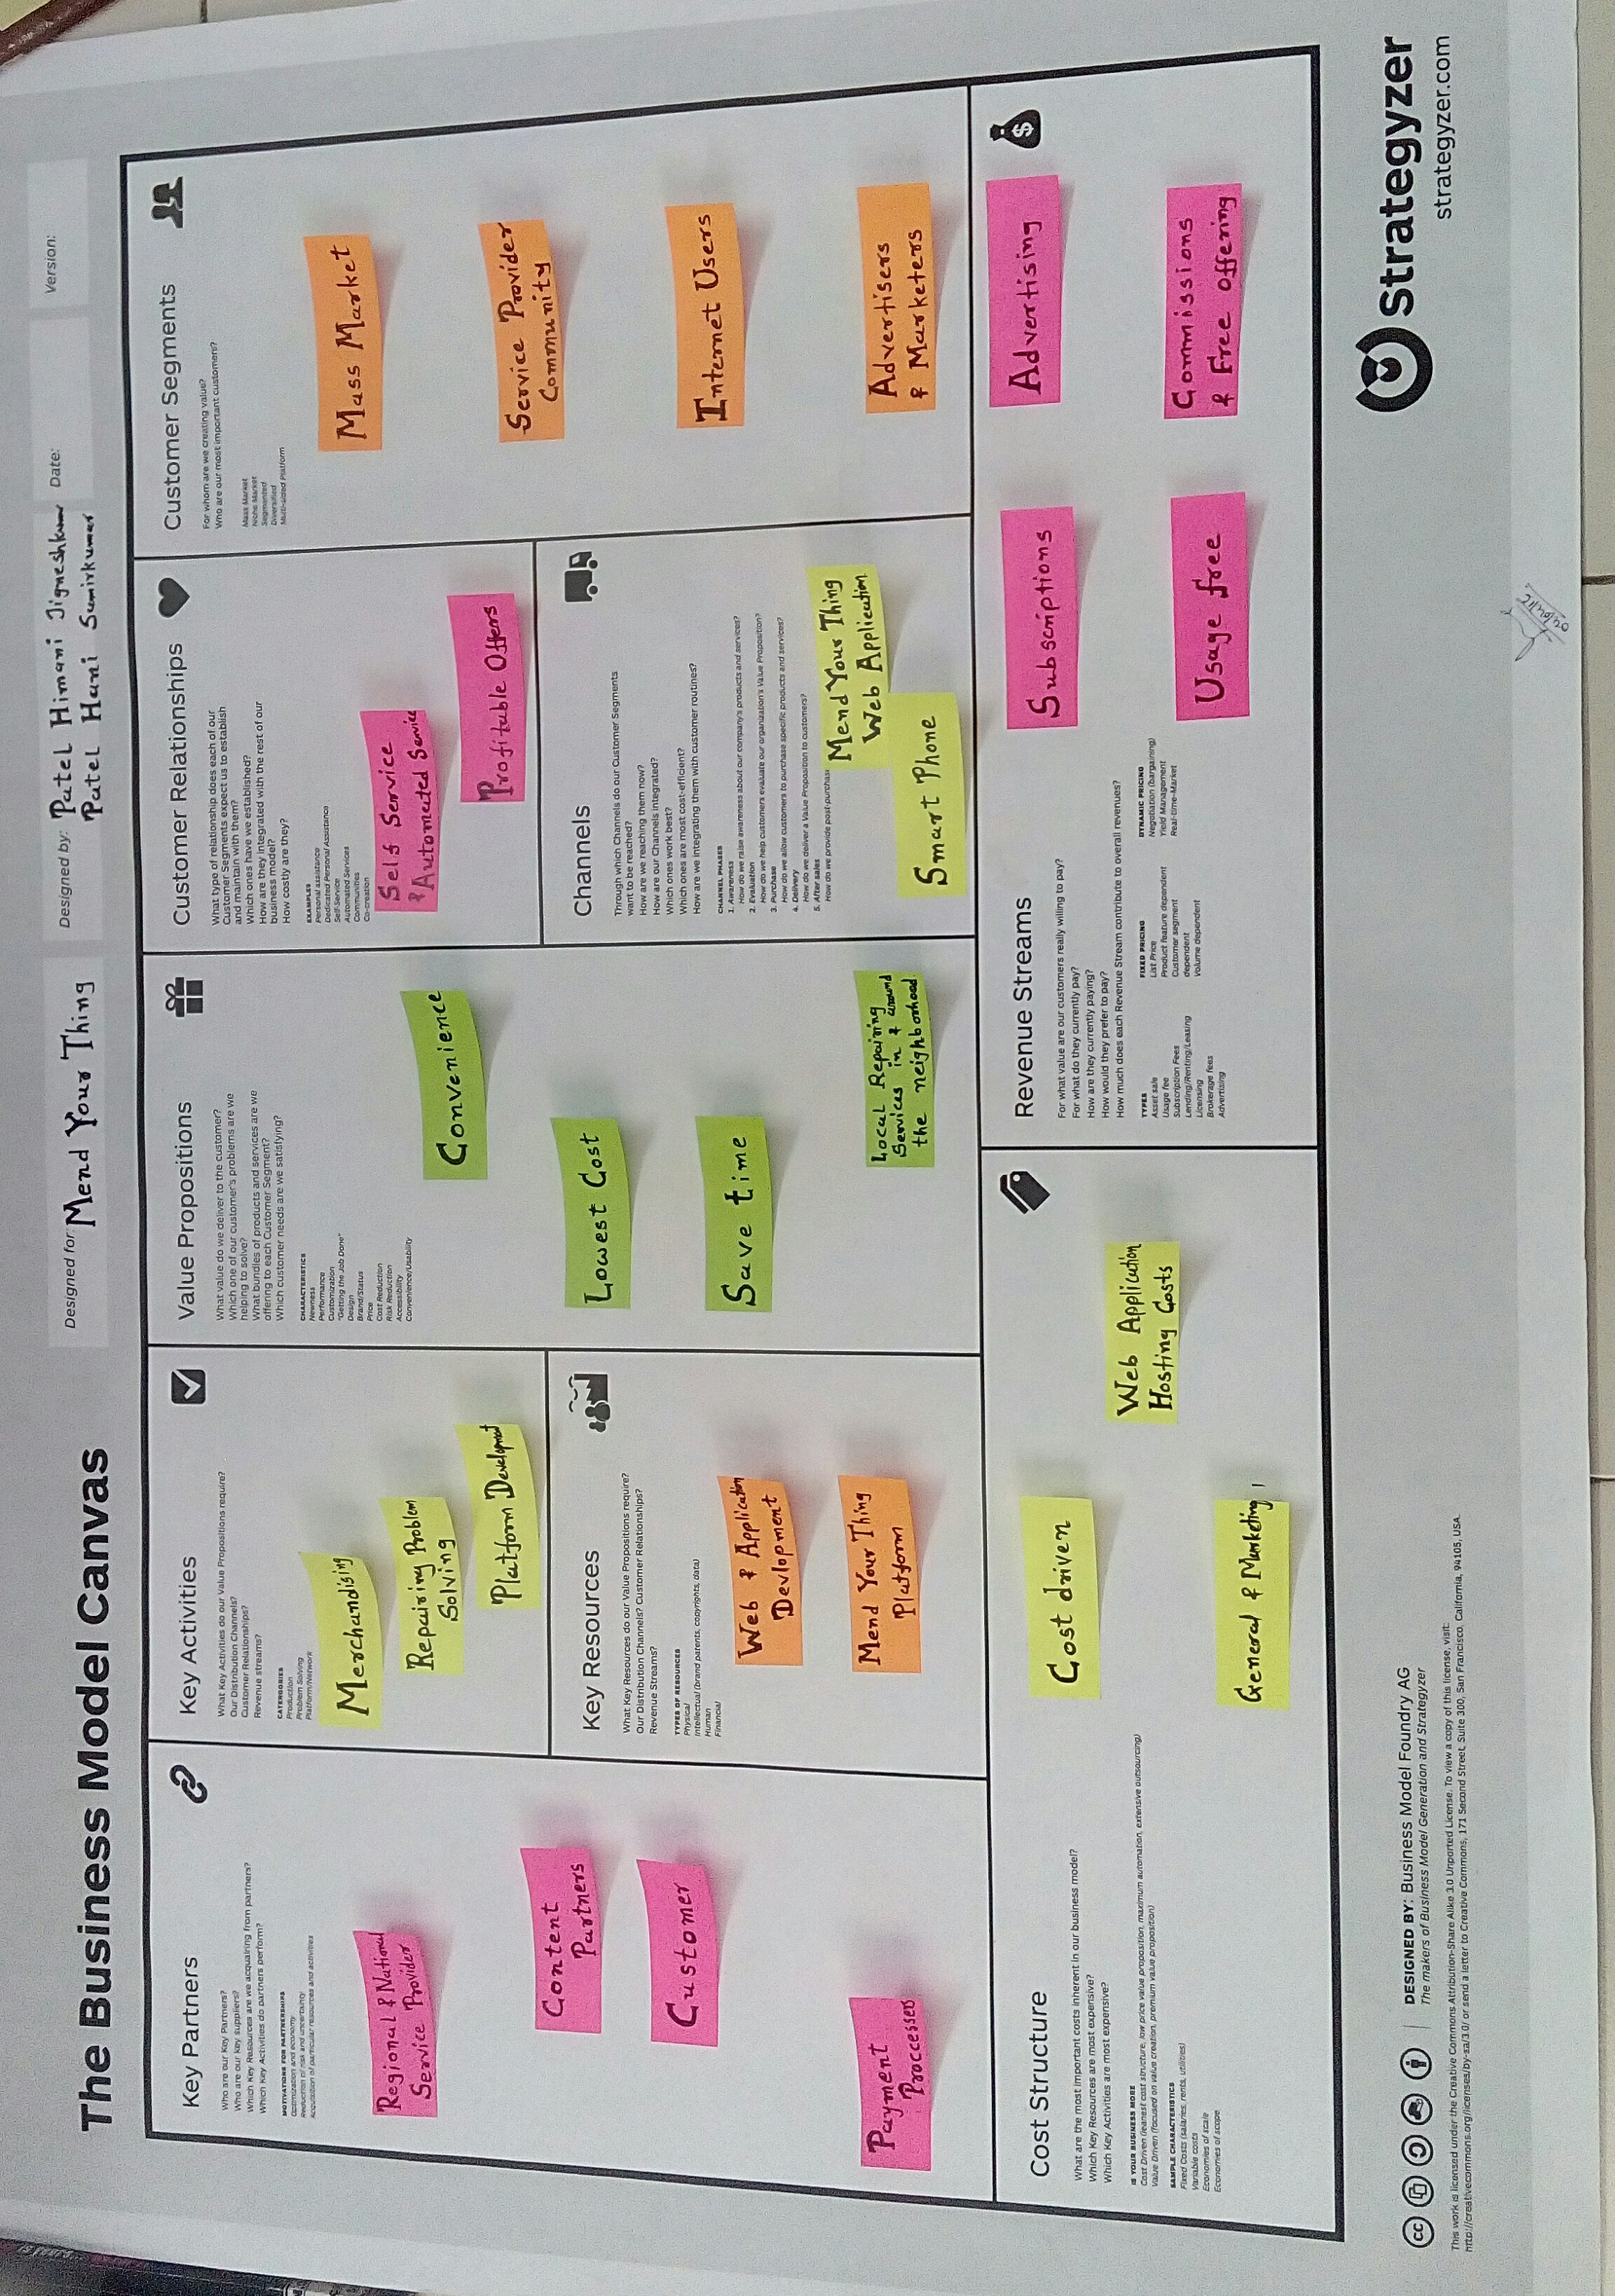 The Business Model Canvas
Designed for:
Mend Your Thing
Designed by:
Patel Himani Jigneshkumar
Patel Hani Sumirkumar
Date:
Version:
Key Partners
Who are our Key Partners?
Who are our key suppliers?
Which Key Resources are we acquairing from partners?
Which Key Activities do partners perform?
MOTIVATIONS FOR PARTNERSHIPS
Optimization and economy
Reduction of risk and uncertainty
Acquisition of particular resources and activities
Regional & National
Service Provider
Content
Partners
Customer
Payment
Proccesser
Key Activities
What Key Activities do our Value Propositions require?
Our Distribution Channels?
Customer Relationships?
Revenue streams?
CATERGORIES
Production
Problem Solving
Platform/Network
Merchandising
Repairing Problem
Solving
Platform Development
Key Resources
What Key Resources do our Value Propositions require?
Our Distribution Channels? Customer Relationships?
Revenue Streams?
TYPES OF RESOURCES
Physical
Intellectual (brand patents, copyrights, data)
Human
Financial
Web & Application
Devlopment
Mend Your Thing
Platform
Value Propositions
What value do we deliver to the customer?
Which one of our customer's problems are we
helping to solve?
What bundles of products and services are we
offering to each Customer Segment?
Which customer needs are we satisfying?
CHARACTERISTICS
Newness
Performance
Customization
"Getting the Job Done"
Design
Brand/Status
Price
Cost Reduction
Risk Reduction
Accessibility
Convenience/Usability
Convenience
Lowest Cost
Save time
Local Repairing
Services in & around
the neighborhood
Customer Relationships
What type of relationship does each of our
Customer Segments expect us to establish
and maintain with them?
Which ones have we established?
How are they integrated with the rest of our
business model?
How costly are they?
EXAMPLES
Personal assistance
Dedicated Personal Assistance
Self-Service
Automated Services
Communities
Co-creation
Self Service
& Automated Service
Profitable Offers
Channels
Through which Channels do our Customer Segments
want to be reached?
How are we reaching them now?
How are our Channels integrated?
Which ones work best?
Which ones are most cost-efficient?
How are we integrating them with customer routines?
CHANNEL PHASES
1. Awareness
How do we raise awareness about our company's products and services?
2. Evaluation
How do we help customers evaluate our organization's Value Proposition?
3. Purchase
How do we allow customers to purchase specific products and services?
4. Delivery
How do we deliver a Value Proposition to customers?
5. After sales
How do we provide post-purchas
Mend Your Thing
Web Application
Smart Phone
Customer Segments
For whom are we creating value?
Who are our most important customers?
Mass Market
Niche Market
Segmented
Diversified
Multi-sided Platform
Mass Market
Service Provider
Community
Internet Users
Advertisers
& Marketers
Cost Structure
What are the most important costs inherent in our business model?
Which Key Resources are most expensive?
Which Key Activities are most expensive?
IS YOUR BUSINESS MORE
Cost Driven (leanest cost structure, low price value proposition, maximum automation, extensive outsourcing)
Value Driven (focused on value creation, premium value proposition)
SAMPLE CHARACTERISTICS
Fixed Costs (salaries, rents, utilities)
Variable costs
Economies of scale
Economies of scope
Cost driven
Web Application
Hosting Costs
General & Marketing
Revenue Streams
For what value are our customers really willing to pay?
For what do they currently pay?
How are they currently paying?
How would they prefer to pay?
How much does each Revenue Stream contribute to overall revenues?
TYPES
Asset sale
Usage fee
Subscription Fees
Lending/Renting/Leasing
Licensing
Brokerage fees
Advertising
FIXED PRICING
List Price
Product feature dependent
Customer segment
dependent
Volume dependent
DYNAMIC PRICING
Negotiation (bargaining)
Yield Management
Real-time-Market
Subscriptions
Advertising
Usage free
Commissions
& Free offering
DESIGNED BY: Business Model Foundry AG
The makers of Business Model Generation and Strategyzer
cc
This work is licensed under the Creative Commons Attribution-Share Alike 3.0 Unported License. To view a copy of this license, visit:
http://creativecommons.org/licenses/by-sa/3.0/ or send a letter to Creative Commons, 171 Second Street, Suite 300, San Francisco, California, 94105, USA.
Strategyzer
strategyzer.com